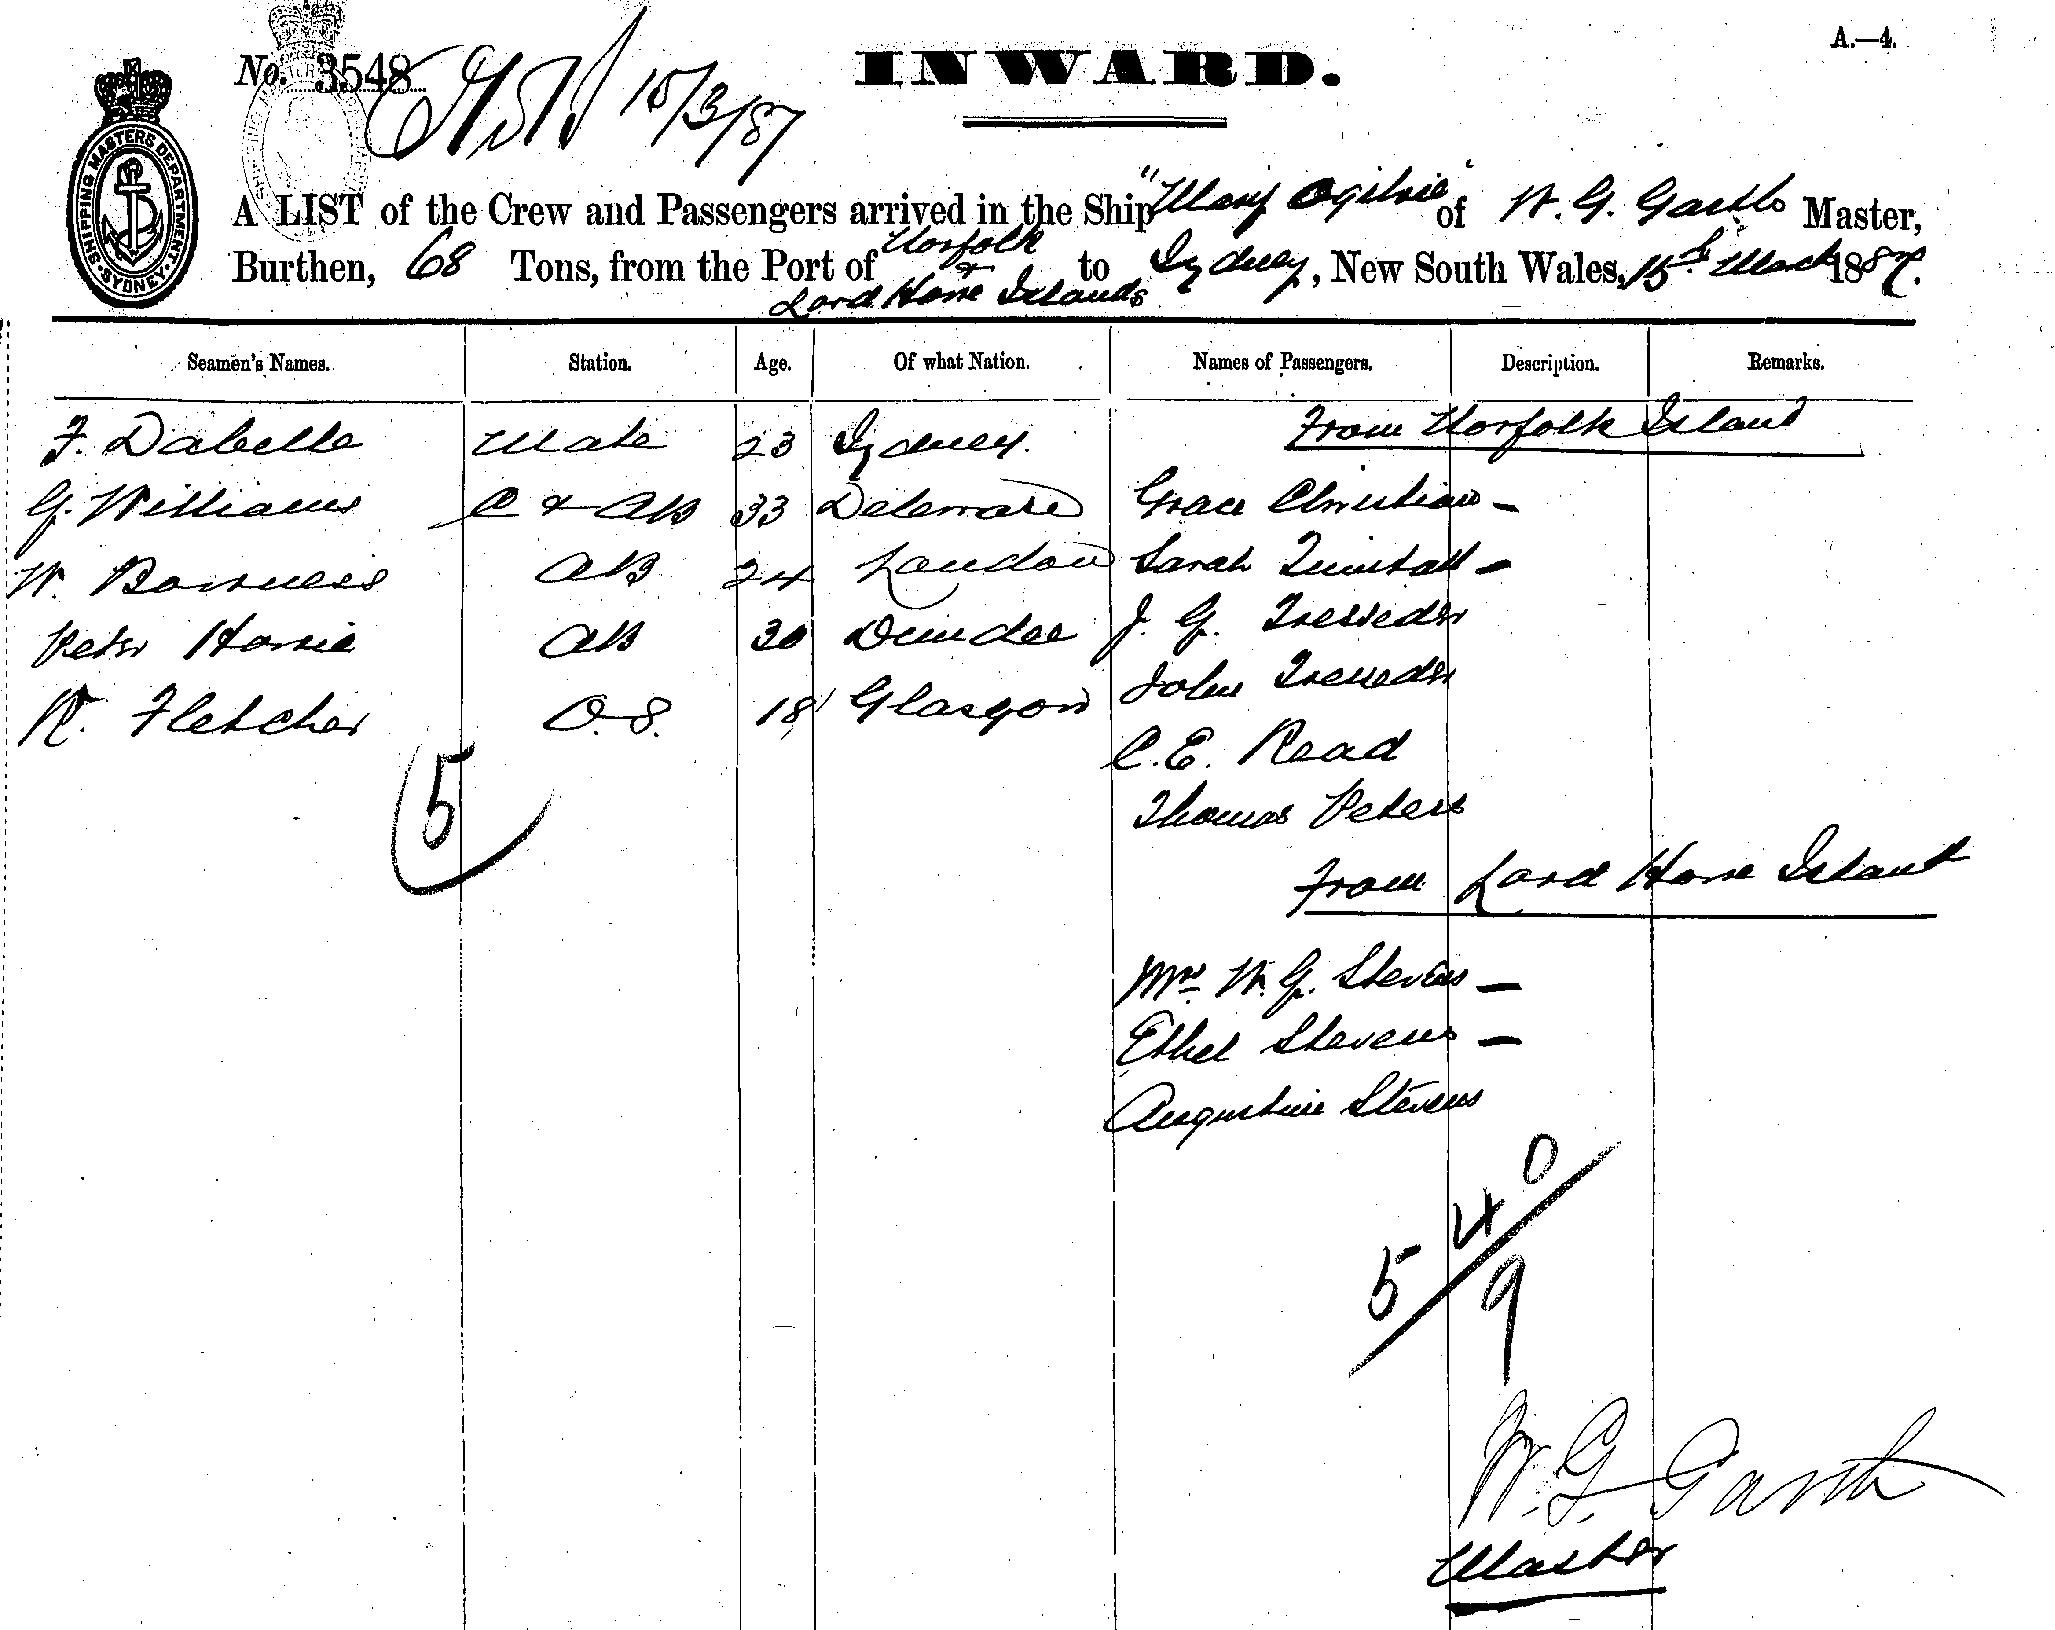 A.—4.
No. 3548
15/3/87
INWARD.
SHIPPING MASTERS DEPARTMENT. SYDNEY.
A LIST of the Crew and Passengers arrived in the Ship "Mary Ogilvie" of W. G. Garth Master,
Burthen, 68 Tons, from the Port of Norfolk & Lord Howe Islands to Sydney, New South Wales, 15th March 1887.
Seamen's Names. Station. Age. Of what Nation. Names of Passengers. Description. Remarks.
From Norfolk Island
F. Dabelle Mate 23 Sydney.
G. Williams C & AB 33 Delaware Grace Christian -
W. Bowness AB 24 London Sarah -
Peter Howie AB 30 Dundee J. G. Treseder
R. Fletcher O.S. 18 Glasgow John Treseder
5
C. E. Read
Thomas Peters
From Lord Howe Island
Mrs W. G. Stevens -
Ethel Stevens -
Augustine Stevens
5 4 0
9
W. G. Garth
Master